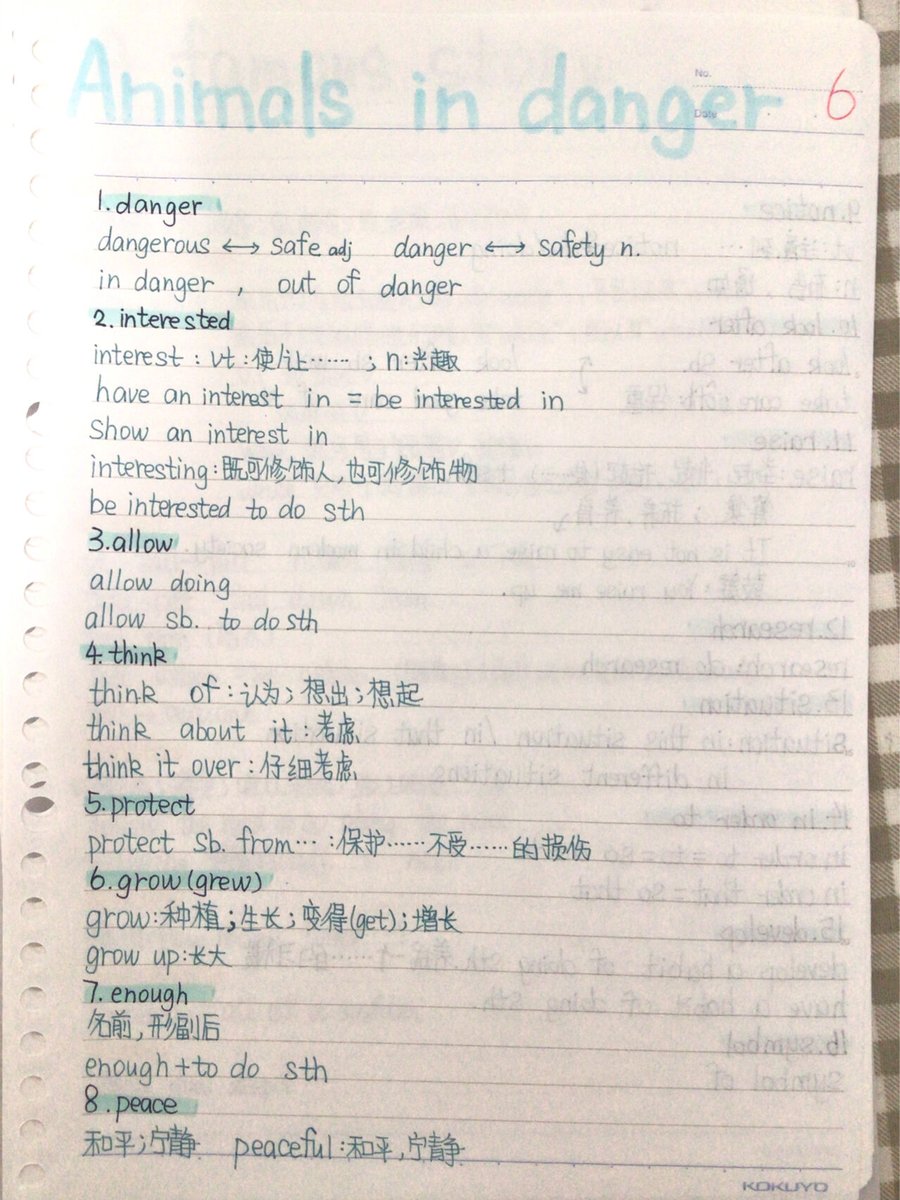 Animals in danger
No.
Date
6
1.danger
dangerous ↔ safe adj danger ↔ safety n.
in danger , out of danger
2.interested
interest : vt:使/让…… ; n:兴趣
have an interest in = be interested in
Show an interest in
interesting:既可修饰人,也可修饰物
be interested to do sth
3.allow
allow doing
allow sb. to do sth
4.think
think of:认为;想出;想起
think about it:考虑
think it over:仔细考虑
5.protect
protect sb. from… :保护……不受……的损伤
6.grow(grew)
grow:种植;生长;变得(get);增长
grow up:长大
7.enough
名前,形副后
enough+to do sth
8.peace
和平;宁静 peaceful:和平,宁静
KOKUYO